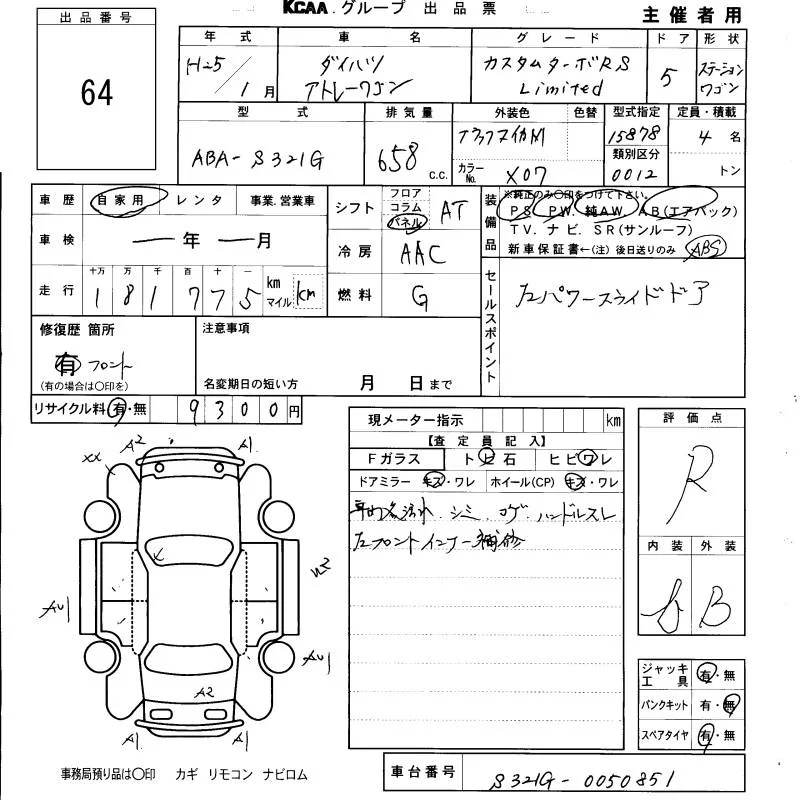 KCAA.グループ 出品票
主催者用
出品番号
64
年式 車名 グレード ドア 形状
H25/1月 ダイハツ アトレーワゴン カスタムターボRS Limited 5 ステーションワゴン
型式 排気量 外装色 色替 型式指定 定員・積載
ABA-S321G 658 c.c. ブラックマイカM 15878 4名
カラーNo. X07 類別区分 0012 トン
車歴 自家用 レンタ 事業.営業車
シフト フロア コラム パネル AT
装備品 ※純正のみ○印をつけて下さい。
PS. PW. 純AW. AB(エアバック)
TV. ナビ. SR(サンルーフ)
新車保証書←(注)後日送りのみ ABS
車検 ー年 ー月
冷房 AAC
走行 十万 万 千 百 十 一
181775 km マイル km
燃料 G
セールスポイント
左パワースライドドア
修復歴 箇所
有 フロント
(有の場合は○印を)
注意事項
名変期日の短い方 月 日まで
リサイクル料 有・無 9300円
現メーター指示 km
【査定員記入】
Fガラス トビ石 ヒビワレ
ドアミラー キズ・ワレ ホイール(CP) キズ・ワレ
車内汚れ.シミ.コゲ.ハンドルスレ
左フロントインナー補修
評価点
R
内装 外装
B
A2 A1
XX
W2
AU1
AU1
A2
A1 A1
ジャッキ工具 有・無
パンクキット 有・無
スペアタイヤ 有・無
事務局預り品は○印 カギ リモコン ナビロム
車台番号 S321G-0050851